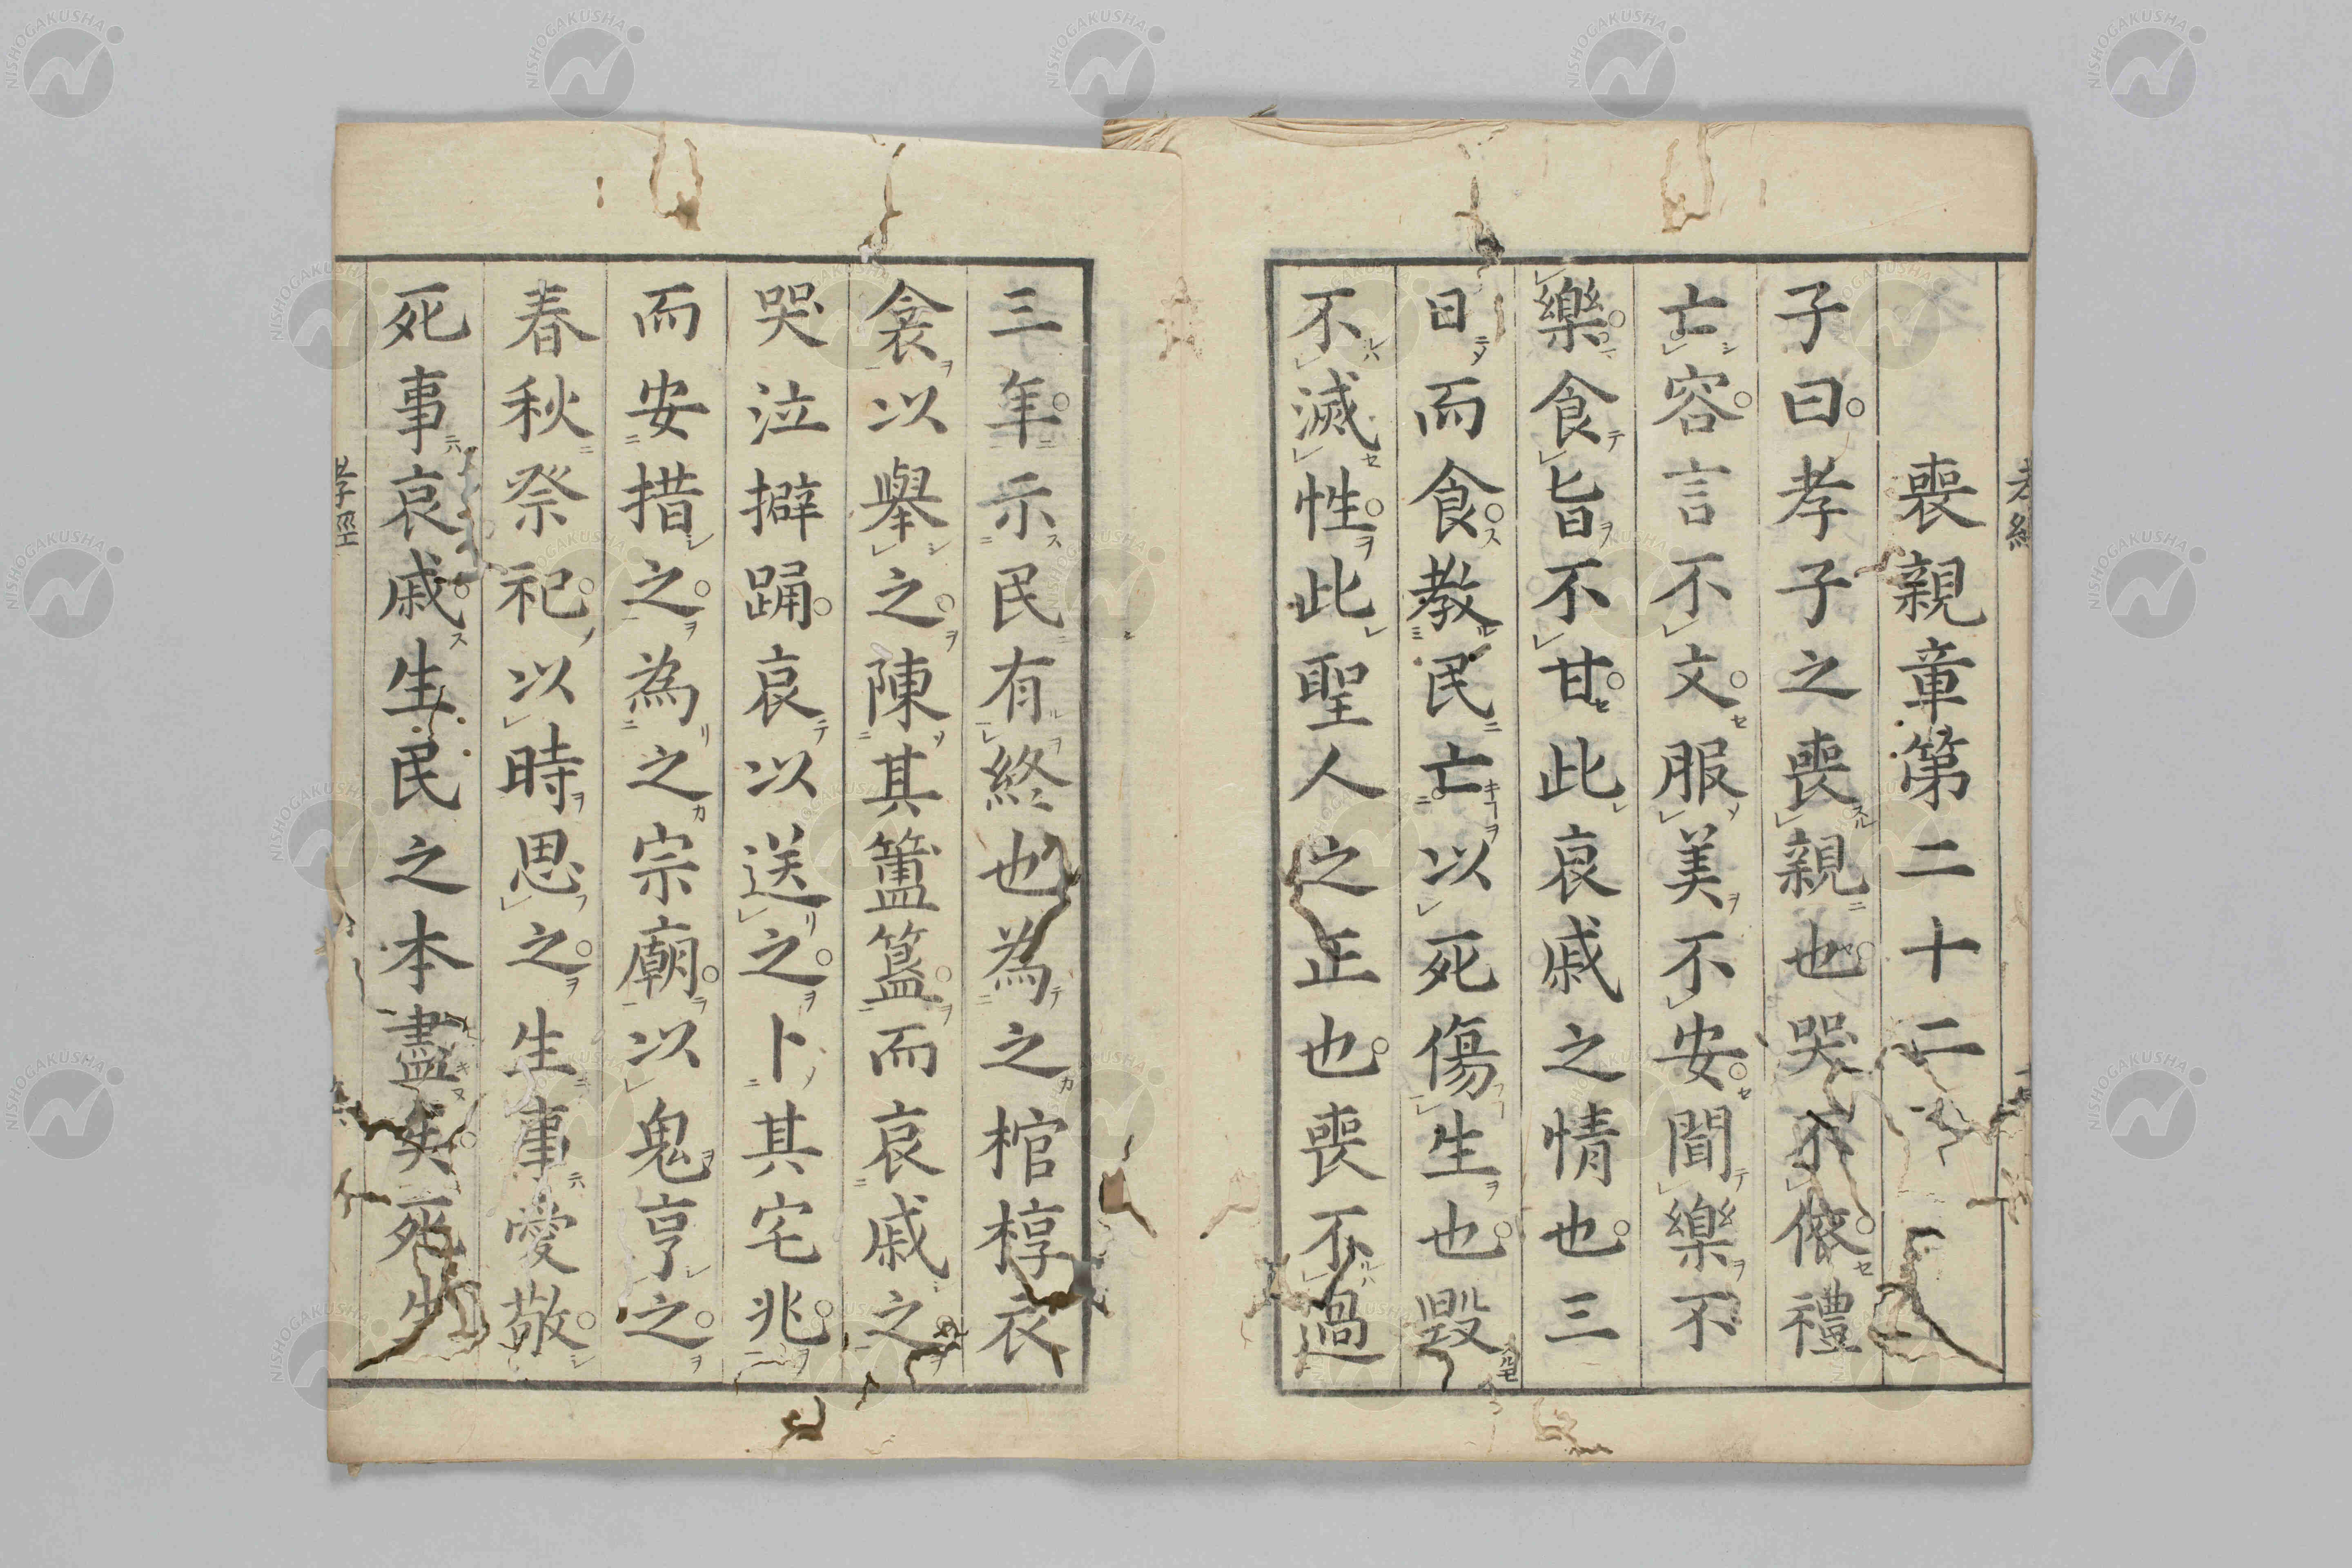 喪親章第二十二
子曰孝子之喪親也哭不偯禮
亡容言不文服美不安聞樂不
樂食旨不甘此哀戚之情也三
日而食教民亡以死傷生也毀
不滅性此聖人之正也喪不過
三年示民有終也為之棺椁衣
衾以舉之陳其簠簋而哀戚之
哭泣擗踊哀以送之卜其宅兆
而安措之為之宗廟以鬼亨之
春秋祭祀以時思之生事愛敬
死事哀戚生民之本盡矣死生
孝經
NISHOGAKUSHA